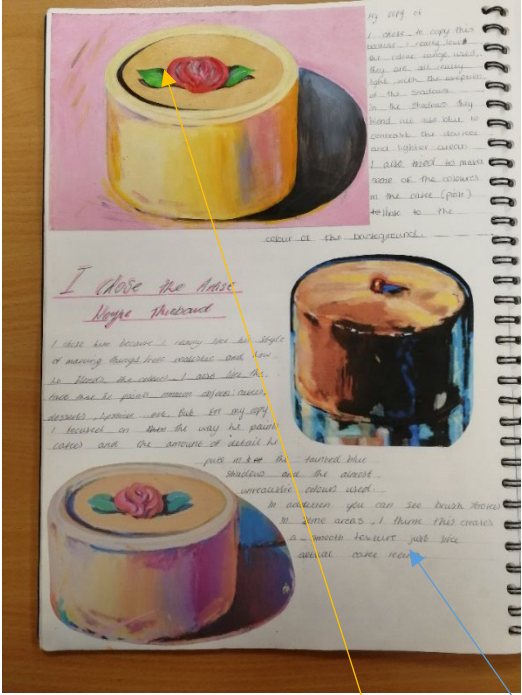 My copy of
I chose to copy this
because I really love
the colour range used,
they are all really
light with the exception
of the shadows.
in the shadows they
blend
contrast the
and lighter areas.
I also tried to make
some of the colours
in the cake (pink)
to the
colour of the background.
I chose the Artist
Wayne Thiebaud
I chose him because I really like his style
of making things look realistic and how
he blends the colours. I also like the
fact that he paints objects: cakes,
desserts, but in my copy
I focused on the way he paints
cakes and the amount of detail he
puts in the blue
shadows and the almost
unrealistic colours used.
In addition you can see brush strokes
in some areas, I think this creates
a smooth texture just like
actual cake